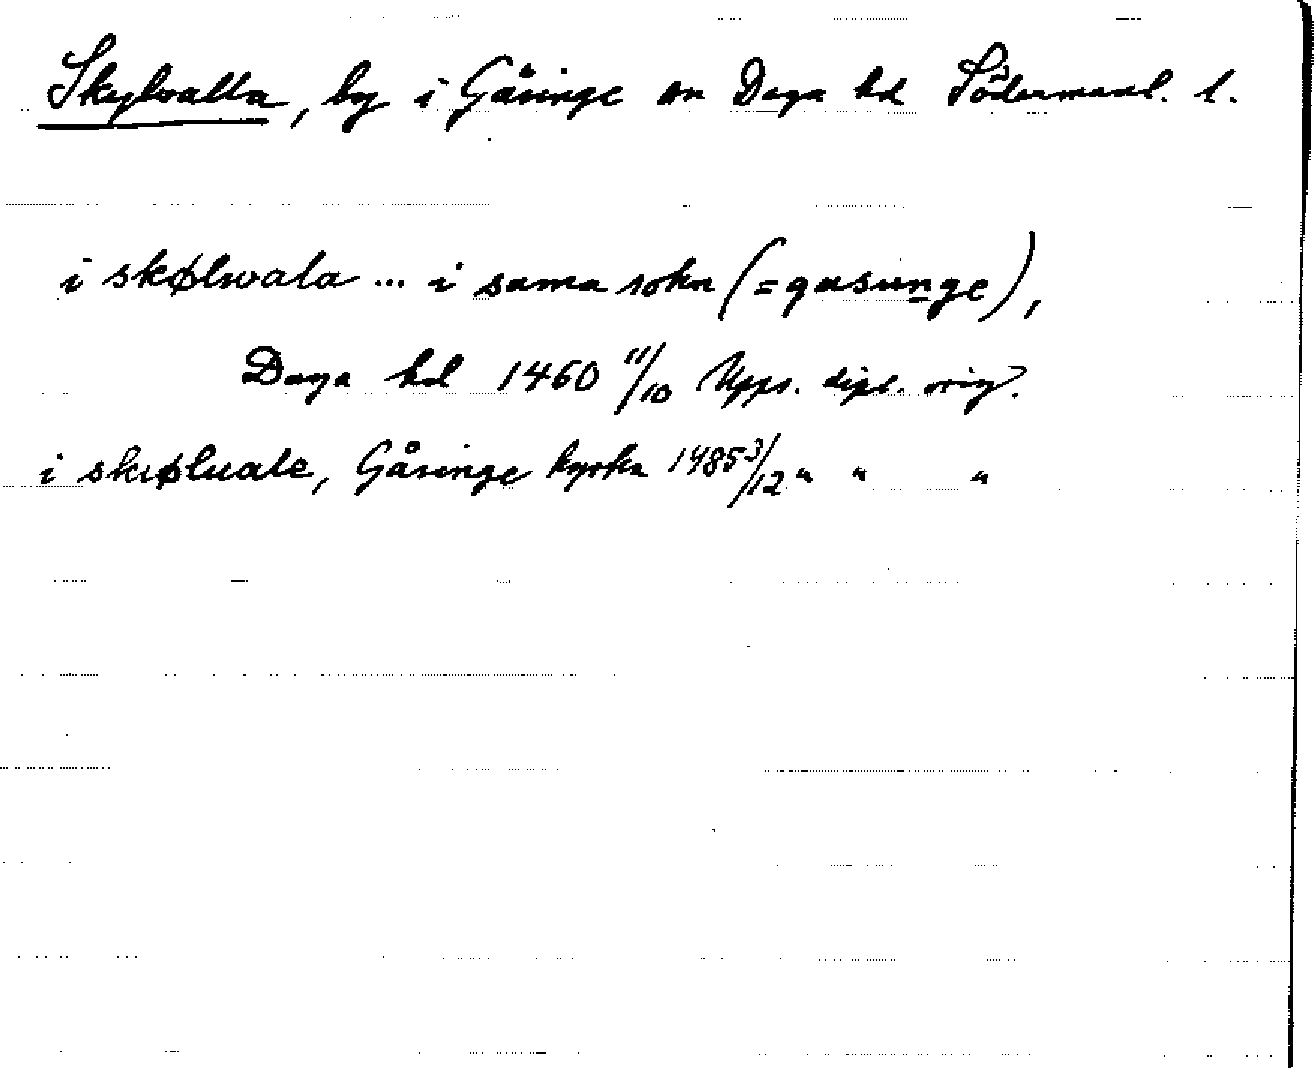 Skylvalla, by i Gåsinge sn Daga hd Södermanl. l.
i skølwala ... i sama sokn (= gasunge),
Daga hd 1460 11/10 Upps. dipl. orig.
i skiøluale, Gåsinge kyrka 1485 3/12 " " "